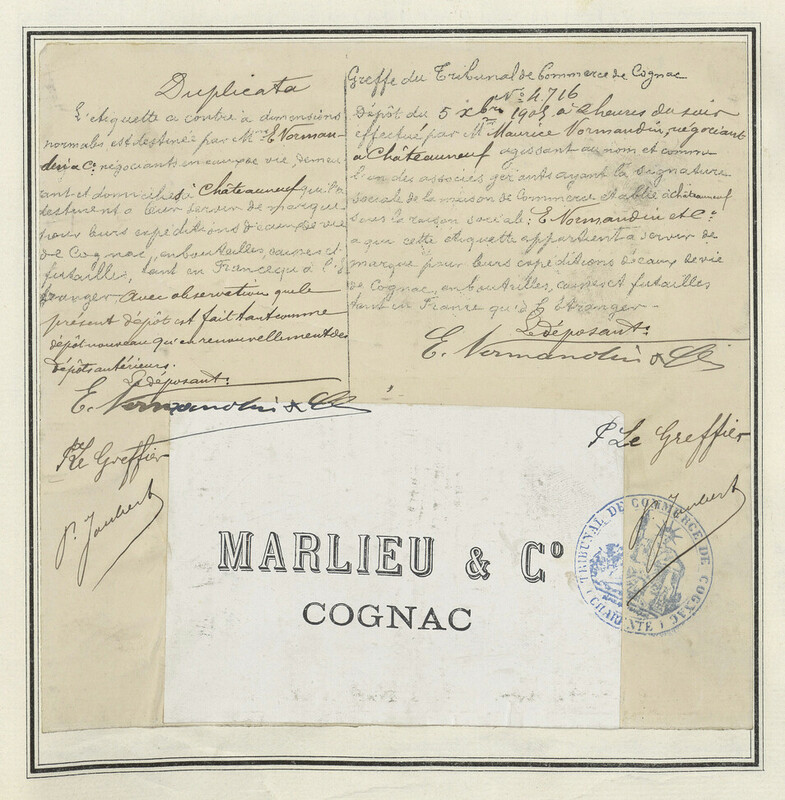 Duplicata
L'étiquette ci contre à dimensions
normales est destinée par Mrs E. Norman-
din & Co négociants en eaux de vie, demeu
rant et domiciliés à Châteauneuf qu'ils
destinent à leur servir de marque
pour leurs expéditions d'eaux de vie
de Cognac, en bouteilles, caisses et
futailles, tant en France qu'à l'É-
tranger. Avec observations que le
présent dépôt est fait tant comme
dépôt nouveau qu'en renouvellement des
dépôts antérieurs.
Le déposant:
E. Normandin & Cie
P. Le Greffier
P. Joubert
Greffe du Tribunal de Commerce de Cognac
No 4.716
Dépôt du 5 xbre 1905, à heures du soir
effectué par Mr Maurice Normandin, négociant
à Châteauneuf agissant au nom et comme
l'un des associés gérants ayant la signature
sociale de la maison de Commerce établie à Châteauneuf
sous la raison sociale: E. Normandin et Co
a que cette étiquette appartient a servir de
marque pour leurs expéditions d'eaux de vie
de Cognac, en bouteilles, caisses et futailles
tant en France qu'à l'Étranger.
Le déposant:
E. Normandin & Cie
P. Le Greffier
P. Joubert
MARLIEU & Co
COGNAC
TRIBUNAL DE COMMERCE DE COGNAC
(CHARENTE)